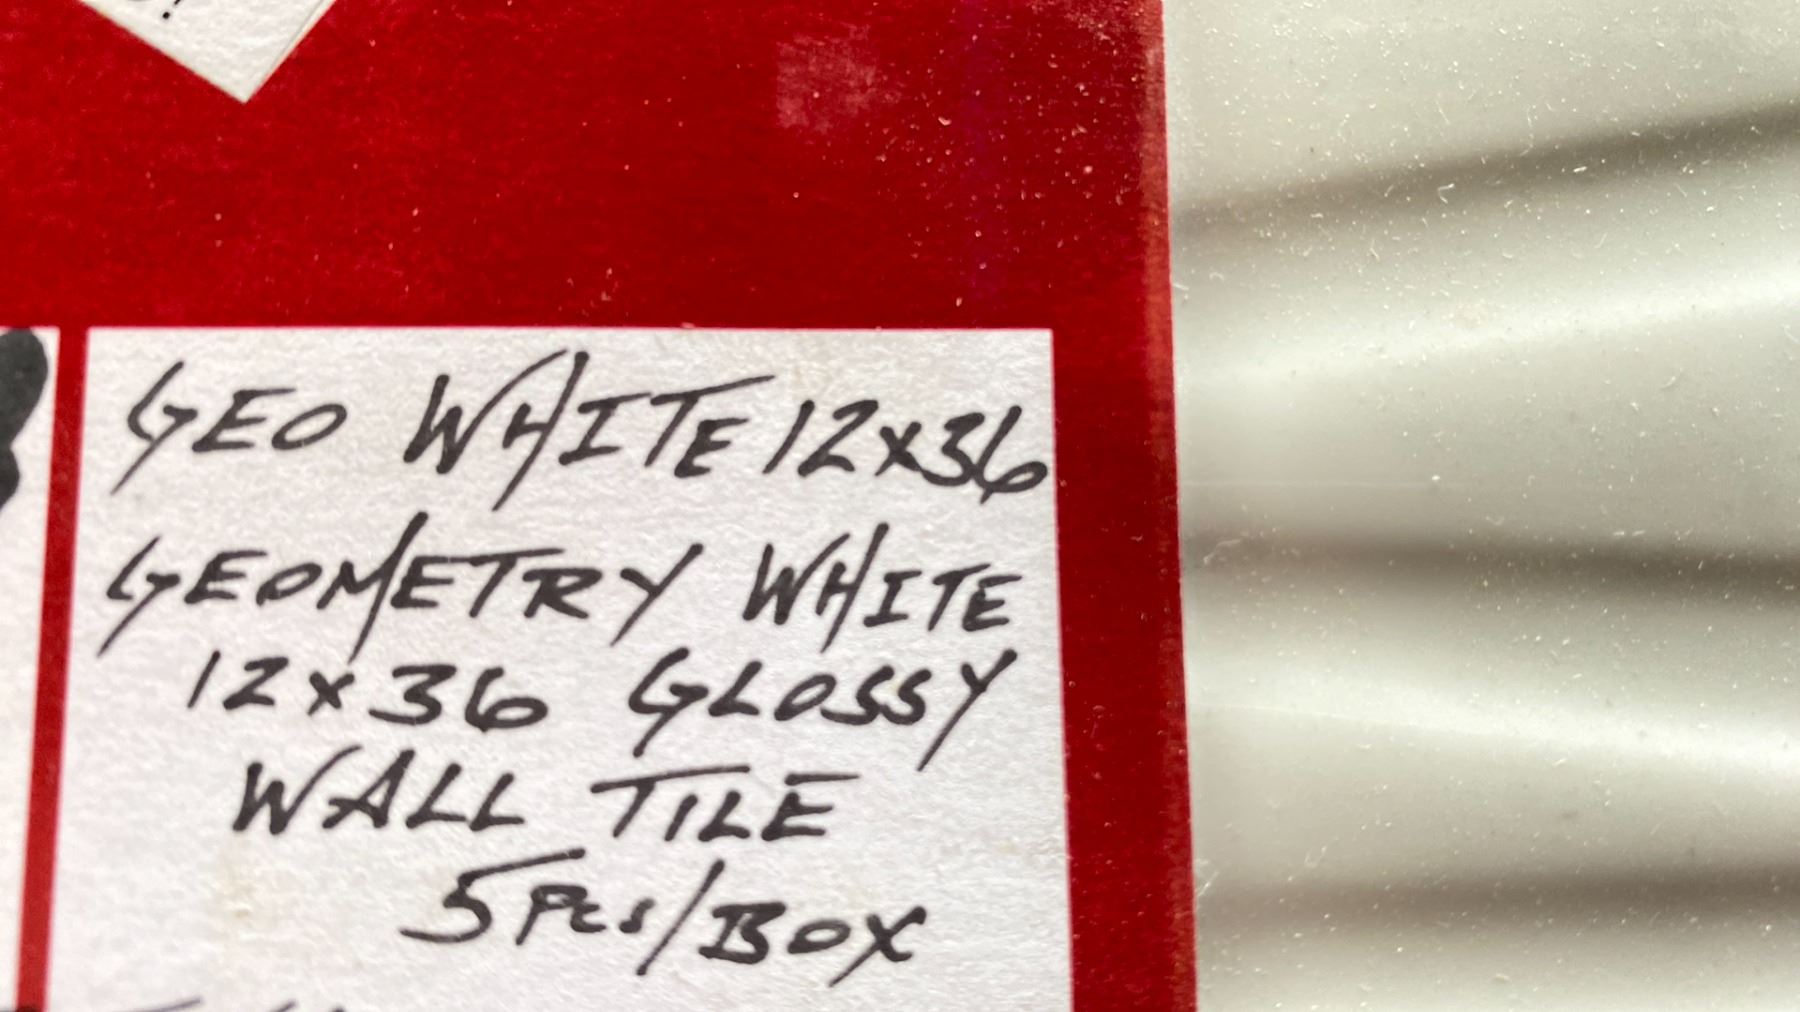 GEO WHITE 12x36
GEOMETRY WHITE
12x36 GLOSSY
WALL TILE
5 Pcs/BOX